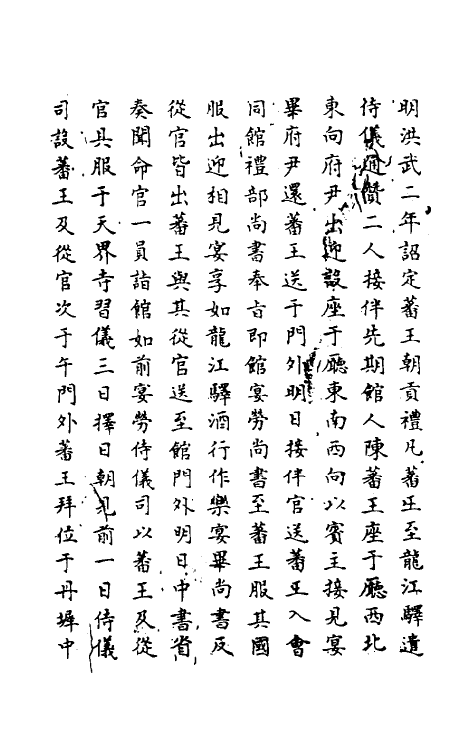 明洪武二年詔定蕃王朝貢禮凡蕃王至龍江驛遣
侍儀通贊二人接伴先期館人陳蕃王座于廳西北
東向府尹出迎設座于廳東南西向以賓主接見宴
畢府尹還蕃王送于門外明日接伴官送蕃王入會
同館禮部尚書奉旨即館宴勞尚書至蕃王服其國
服出迎相見宴享如龍江驛酒行作樂宴畢尚書及
從官皆出蕃王與其從官送至館門外明日中書省
奏聞命官一員詣館如前宴勞侍儀司以蕃王及從
官具服于天界寺習儀三日擇日朝見前一日侍儀
司設蕃王及從官次于午門外蕃王拜位于丹墀中